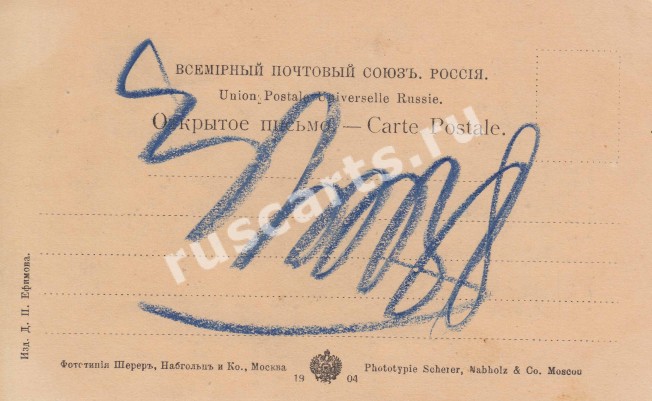 ВСЕМІРНЫЙ ПОЧТОВЫЙ СОЮЗЪ. РОССІЯ.
Union Postale Universelle Russie.
Открытое письмо. — Carte Postale.
ruscarts.ru
Изд. Д. П. Ефимова.
Фототипія Шереръ, Набгольцъ и Ко., Москва
Phototypie Scherer, Nabholz & Co. Moscou
19 04